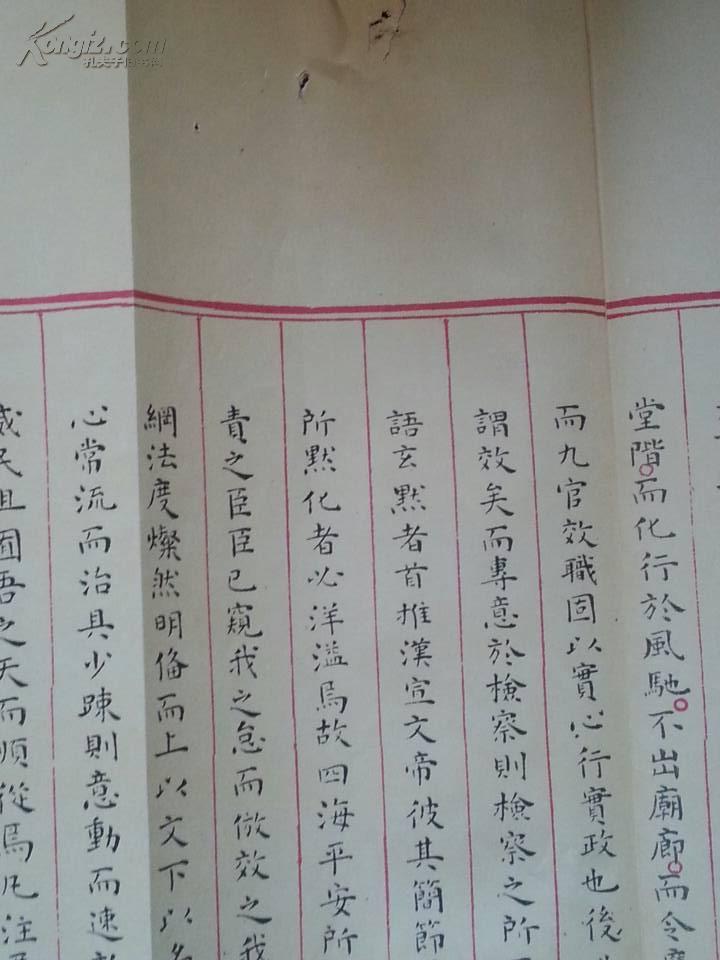 Kongfz.com
孔夫子旧书网
堂階而化行於風馳不出廟廊而令
而九官效職固以實心行實政也後
謂效矣而專意於檢察則檢察之所
語玄默者首推漢宣文帝彼其簡節
所默化者必洋溢焉故四海平安所
責之臣臣已窺我之怠而倣效之我
綱法度燦然明俻而上以文下以名
心常流而治具少踈則意動而速
民且固吾之天而順從焉凡注